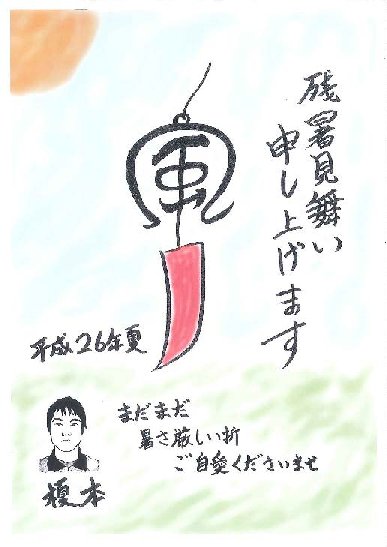 残暑見舞い
申し上げます
風
平成26年夏
まだまだ
暑さ厳しい折
ご自愛くださいませ
榎本